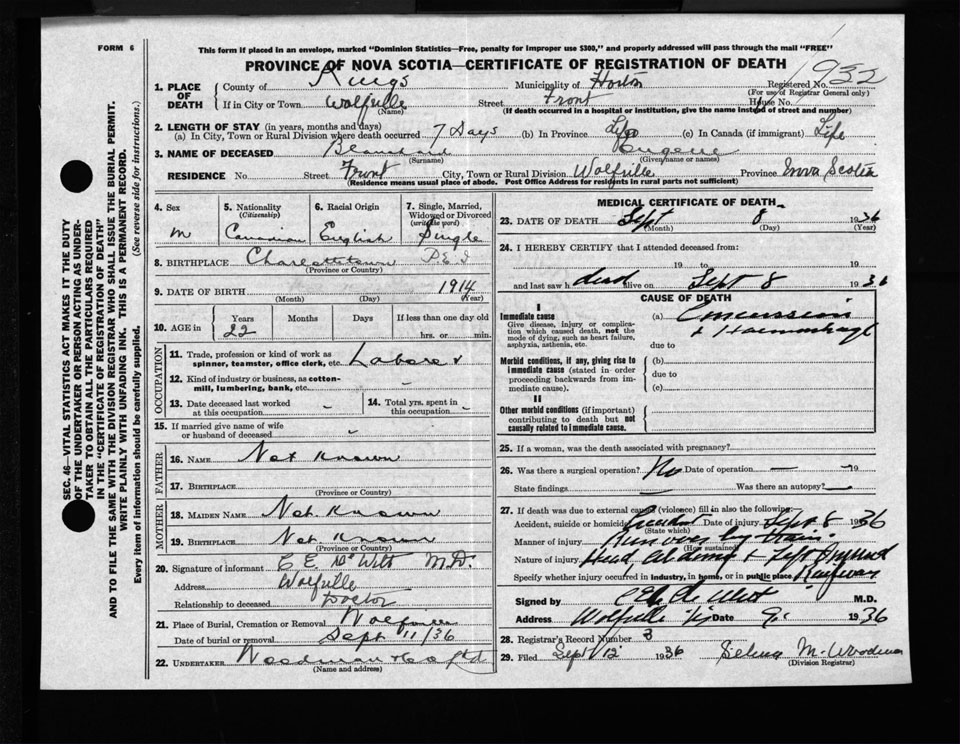 FORM 6
This form if placed in an envelope, marked "Dominion Statistics—Free, penalty for improper use $300," and properly addressed will pass through the mail "FREE"
PROVINCE OF NOVA SCOTIA—CERTIFICATE OF REGISTRATION OF DEATH
932
1. PLACE OF DEATH County of Kings Municipality of Horton Registered No.
(For use of Registrar General only)
If in City or Town Wolfville Street Front House No.
(Name) (If death occurred in a hospital or institution, give the name instead of street and number)
2. LENGTH OF STAY (in years, months and days)
(a) In City, Town or Rural Division where death occurred 7 Days (b) In Province Life (c) In Canada (if immigrant) Life
3. NAME OF DECEASED Blanchard Eugene
(Surname) (Given name or names)
RESIDENCE No. Street Front City, Town or Rural Division Wolfville Province Nova Scotia
(Residence means usual place of abode. Post Office Address for residents in rural parts not sufficient)
4. Sex 5. Nationality (Citizenship) 6. Racial Origin 7. Single, Married, Widowed or Divorced (write the word)
M Canadian English Single
8. BIRTHPLACE Charlottetown P E I
(Province or Country)
9. DATE OF BIRTH 1914
(Month) (Day) (Year)
10. AGE in Years Months Days If less than one day old
22 hrs. or min.
OCCUPATION
11. Trade, profession or kind of work as spinner, teamster, office clerk, etc. Laborer
12. Kind of industry or business, as cotton-mill, lumbering, bank, etc. -
13. Date deceased last worked at this occupation - 14. Total yrs. spent in this occupation -
15. If married give name of wife or husband of deceased -
FATHER
16. NAME Not Known
17. BIRTHPLACE
(Province or Country)
MOTHER
18. MAIDEN NAME Not Known
19. BIRTHPLACE Not Known
(Province or Country)
20. Signature of informant C E DeWitt M.D.
Address Wolfville
Relationship to deceased Doctor
21. Place of Burial, Cremation or Removal Wolfville
Date of burial or removal Sept 11/36
22. UNDERTAKER Woodman & Co Ltd
(Name and address)
MEDICAL CERTIFICATE OF DEATH
23. DATE OF DEATH Sept 8 1936
(Month) (Day) (Year)
24. I HEREBY CERTIFY that I attended deceased from:
19 to 19
and last saw h dead alive on Sept 8 1936
CAUSE OF DEATH
I
Immediate cause (a) Concussion
Give disease, injury or complication which caused death, not the mode of dying, such as heart failure, asphyxia, asthenia, etc. & Haemorrhage
due to
Morbid conditions, if any, giving rise to immediate cause (stated in order proceeding backwards from immediate cause). (b)
due to
(c)
II
Other morbid conditions (if important) contributing to death but not causally related to immediate cause.
25. If a woman, was the death associated with pregnancy?
26. Was there a surgical operation? No Date of operation — 19
State findings — Was there an autopsy? —
27. If death was due to external causes (violence) fill in also the following:
Accident, suicide or homicide Accident Date of injury Sept 8 1936
(State which)
Manner of injury Run over by train
(How sustained)
Nature of injury Head & Left
Specify whether injury occurred in industry, in home, or in public place Railway
Signed by C E DeWitt M.D.
Address Wolfville Date 9 1936
28. Registrar's Record Number 3
29. Filed Sept 12 1936 Selina M. Woodman
(Division Registrar)
SEC. 46—VITAL STATISTICS ACT MAKES IT THE DUTY
OF THE UNDERTAKER OR PERSON ACTING AS UNDER-
TAKER TO OBTAIN ALL THE PARTICULARS REQUIRED
IN THE "CERTIFICATE OF REGISTRATION OF DEATH"
AND TO FILE THE SAME WITH THE DIVISION REGISTRAR WHO SHALL ISSUE THE BURIAL PERMIT.
WRITE PLAINLY WITH UNFADING INK. THIS IS A PERMANENT RECORD.
Every item of information should be carefully supplied. (See reverse side for instructions.)